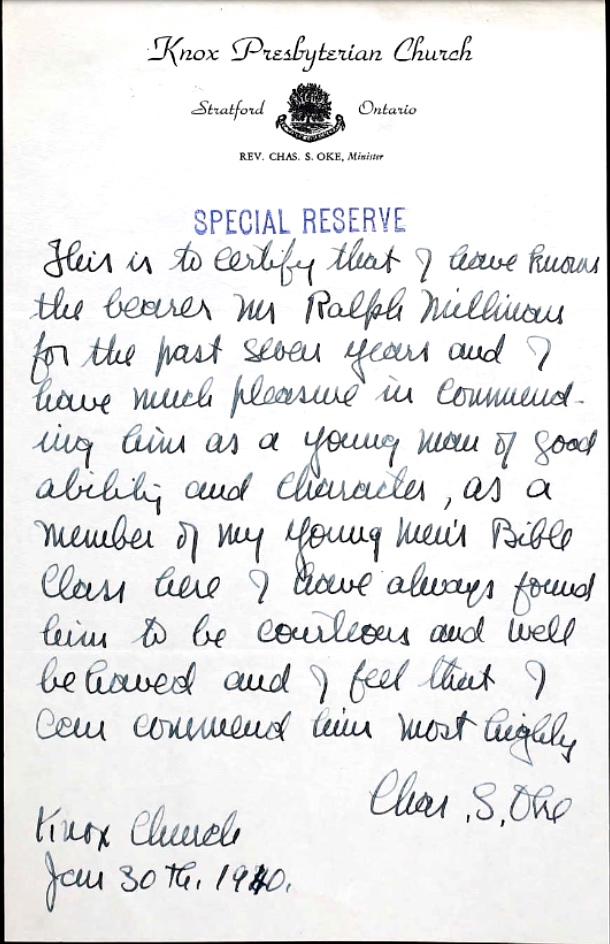 Knox Presbyterian Church
Stratford Ontario
REV. CHAS. S. OKE, Minister
SPECIAL RESERVE
This is to certify that I have known
the bearer Mr Ralph Millman
for the past seven years and I
have much pleasure in commend-
ing him as a young man of good
ability and character, as a
member of my young men's Bible
Class here I have always found
him to be courteous and well
behaved and I feel that I
can commend him most highly
Chas. S. Oke
Knox Church
Jan 30th. 1940.